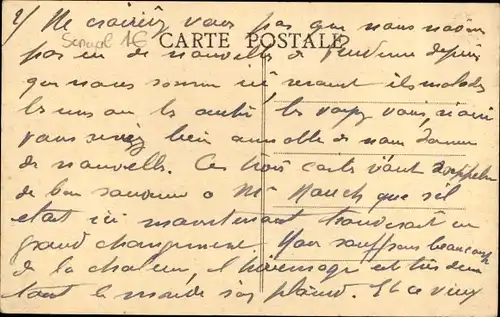 2/ Ne croiriez vous pas que nous n'avons
Senegal 16
CARTE POSTALE
pas eu de nouvelles de depuis
que nous sommes ici seraient ils malades
les uns ou les autres les voyez vous, Mari
vous seriez bien aimable de nous donner
de nouvelles. Ces trois cartes vont rappeler
de bon souvenir a Mr Hauch que s'il
etait ici maintenant trouverait un
grand changement Nous souffrons beaucoup
de la chaleur, l' et tres dur
tout le monde s'en plaind. Et ce vieux